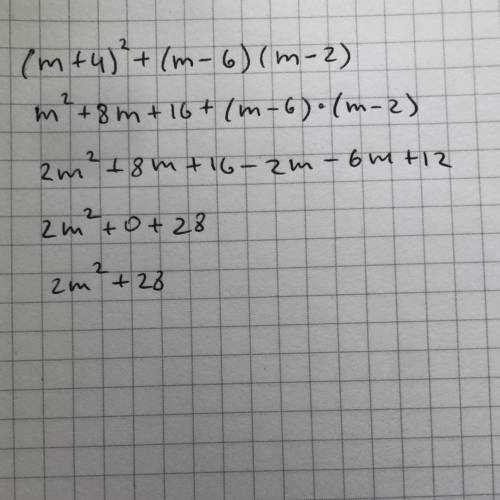 (m+4)² + (m-6)(m-2)
m² + 8m + 16 + (m-6)·(m-2)
2m² + 8m + 16 - 2m - 6m + 12
2m² + 0 + 28
2m² + 28